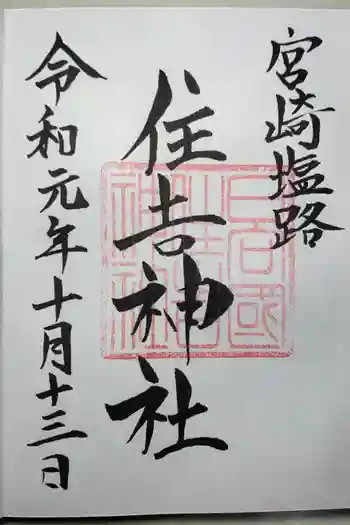 宮崎塩路
住吉神社
令和元年十月十三日